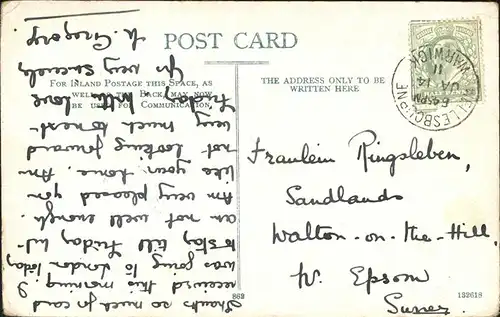 POST CARD
FOR INLAND POSTAGE THIS SPACE, AS
WELL AS THE BACK, MAY NOW
BE USED FOR COMMUNICATION.
THE ADDRESS ONLY TO BE
WRITTEN HERE
WELLESBOURNE
6 45 PM
JA 14
11
WARWICK
Fraulein Ringsleben,
Sandlands
Walton-on-the-Hill,
Nr. Epsom
Surrey
Thanks so much for card
received this morning. I
was going to London today
to stay till Friday but
am not well enough.
Am very pleased you
like your home. Am
not looking forward
very much to next
Friday. With love
Yrs very sincerely
M. Gregory.
862
132619